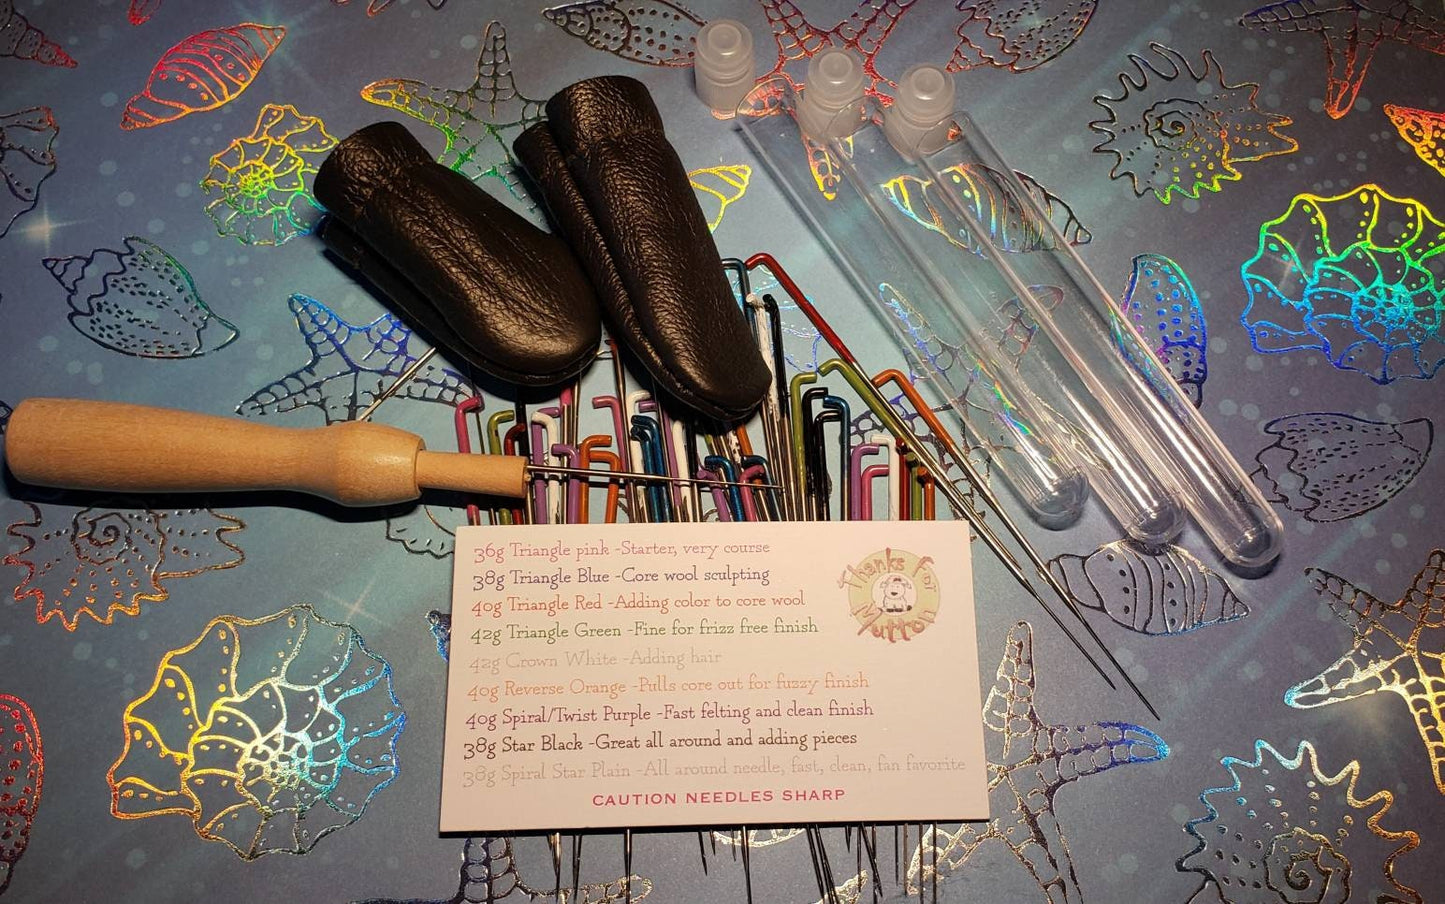 36g Triangle pink -Starter, very course
38g Triangle Blue -Core wool sculpting
40g Triangle Red -Adding color to core wool
42g Triangle Green -Fine for frizz free finish
42g Crown White -Adding hair
40g Reverse Orange -Pulls core out for fuzzy finish
40g Spiral/Twist Purple -Fast felting and clean finish
38g Star Black -Great all around and adding pieces
38g Spiral Star Plain -All around needle, fast, clean, fan favorite
CAUTION NEEDLES SHARP
Thanks for
Mutton